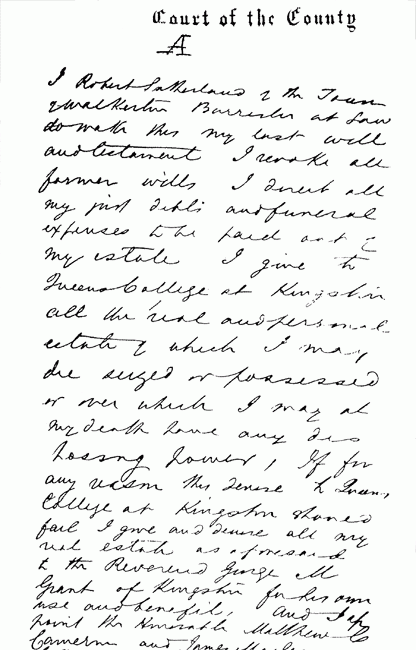 Court of the County
A
I Robert Sutherland of the Town
of Walkerton Barrister at Law
do make this my last will
and testament I revoke all
former wills I direct all
my just debts and funeral
expenses to be paid out of
my estate I give to
Queens College at Kingston
all the real and personal
estate of which I may
die seized or possessed
or over which I may at
my death have any dis
posing power, If for
any reason this devise to Queens
College at Kingston should
fail I give and devise all my
real estate as aforesaid
to the Reverend George M
Grant of Kingston for his own
use and benefit, and I ap
point the Honorable Matthew C
Cameron and James